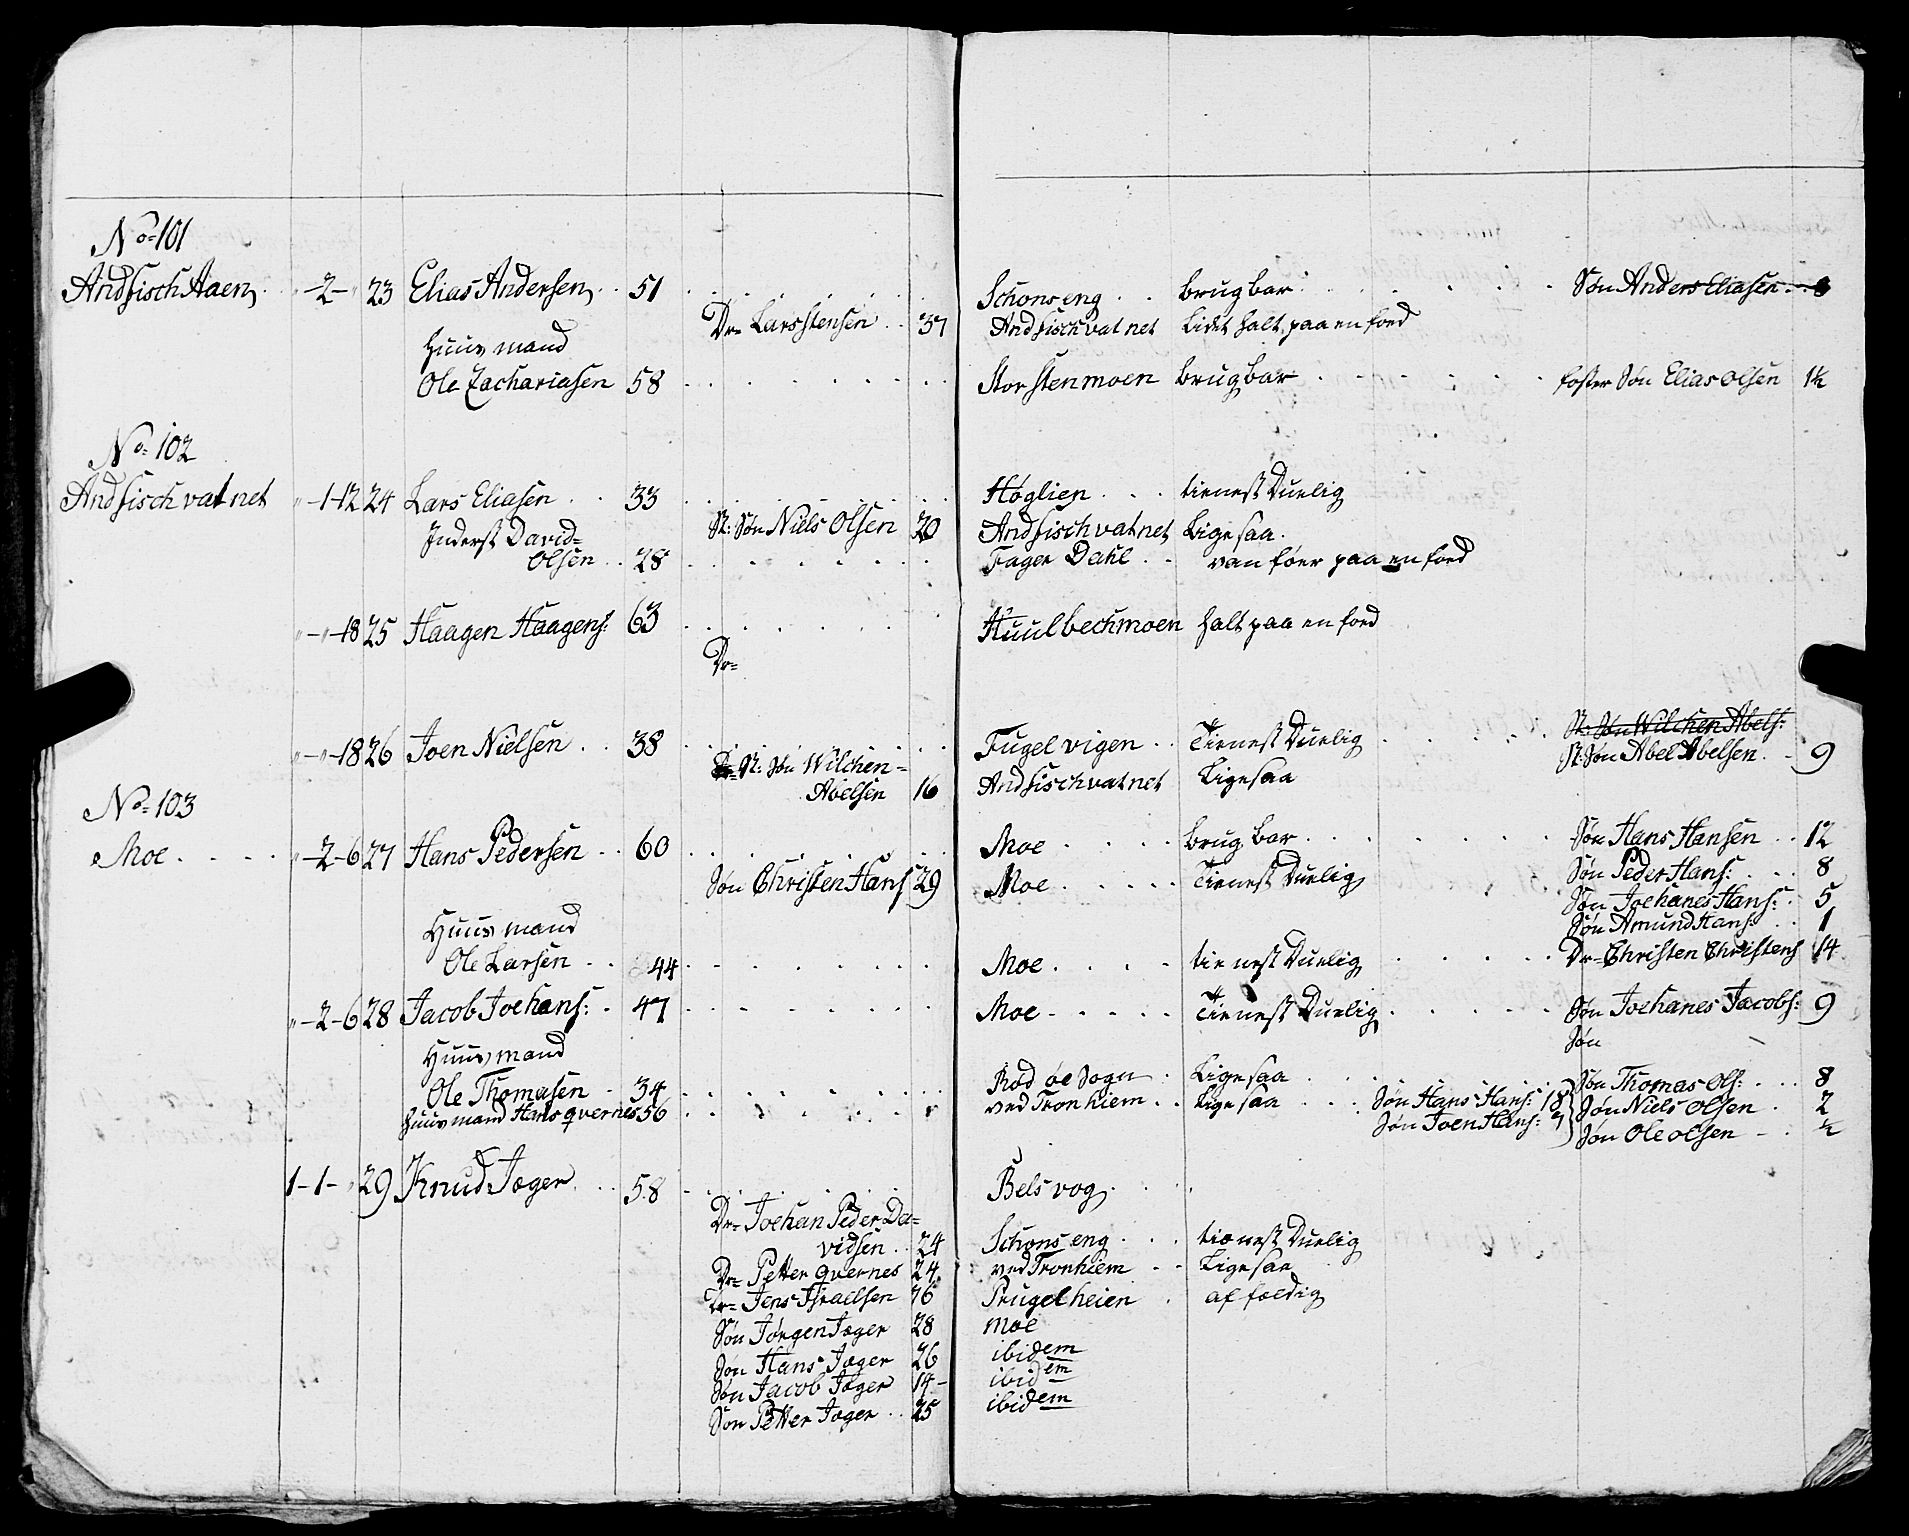 No 101
Andfisch Aaen -2-" 23 Elias Andersen 51 Schonseng brugbar Søn Anders Eliasen 8
Dr= Lars Stensen 37 Andfischvatnet Lidet halt paa en foed
Huusmand
Ole Zachariasen 58 Storstenmoen brugbar foster Søn Elias Olsen 1½
No 102
Andfischvatnet "-1-12 24 Lars Eliasen 33 Høglien tienest Duelig
St: Søn Niels Olsen 20 Andfischvatnet Ligesaa
Inderst David=
Olsen 28 Fager Dahl van føer paa en foed
"-"-18 25 Haagen Haagens: 63 Huulbechmoen halt paa en foed
Dr=
"-"-18 26 Joen Nielsen 38 Fugelvigen Tienest Duelig St: Søn Wilchen Abels:
St: Søn Abel Abelsen 9
St: Søn Wilchen=
Abelsen 16 Andfischvatnet Ligesaa
No 103
Moe "-2-6 27 Hans Pedersen 60 Moe brugbar Søn Hans Hansen 12
Søn Christen Hans 29 Moe Tienest Duelig Søn Peder Hans: 8
Søn Joehanes Hans: 5
Søn Amund Hans: 1
Huusmand
Ole Larsen 44 Moe tienest Duelig Dr= Christen Christens 14
"-2-6 28 Jacob Joehans: 47 Moe Tienest Duelig Søn Joehanes Jacobs: 9
Søn
Huusmand
Ole Thomasen 34 Rød øe Sogn Ligesaa Søn Thomas Ols: 8
Huusmand Hans qvernes 56 ved Tronhiem Ligesaa Søn Hans Hans: 18 Søn Niels Olsen 2
Søn Joen Hans: 7 Søn Ole Olsen ½
1-1-" 29 Knud Jæger 58 Belsvog
Dr= Joehan Peder Da=
vidsen 24 Schonseng tienest Duelig
Dr= Petter qvernes 24 ved Tronhiem Ligesaa
Dr= Jens Israelsen 76 Prugelheien affældig
Søn Jørgen Jæger 28 Moe
Søn Hans Jæger 26 ibidem
Søn Jacob Jæger 14 ibidem
Søn Petter Jæger 25 ibidem